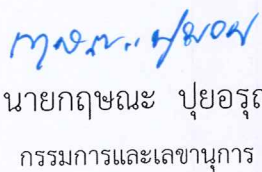 นายกฤษณะ ปุยอรุณ
กรรมการและเลขานุการ